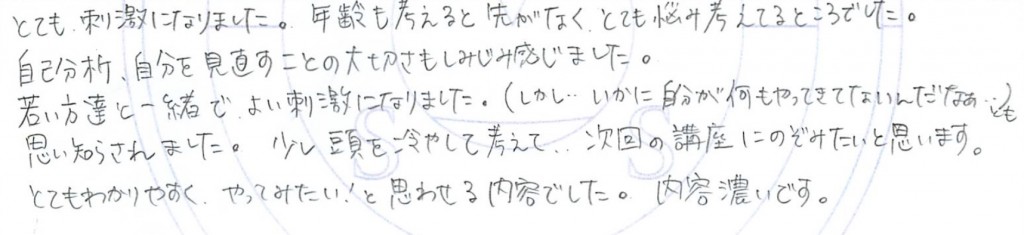 とても、刺激になりました。年齢も考えると先がなく、とても悩み考えてるところでした。
自己分析、自分を見直すことの大切さもしみじみ感じました。
若い方達と一緒で、よい刺激になりました。(しかし…いかに自分が何もやってきてないんだなぁ…)とも
思い知らされました。少し頭を冷やして考えて…次回の講座にのぞみたいと思います。
とてもわかりやすく、やってみたい!と思わせる内容でした。内容濃いです。
S S